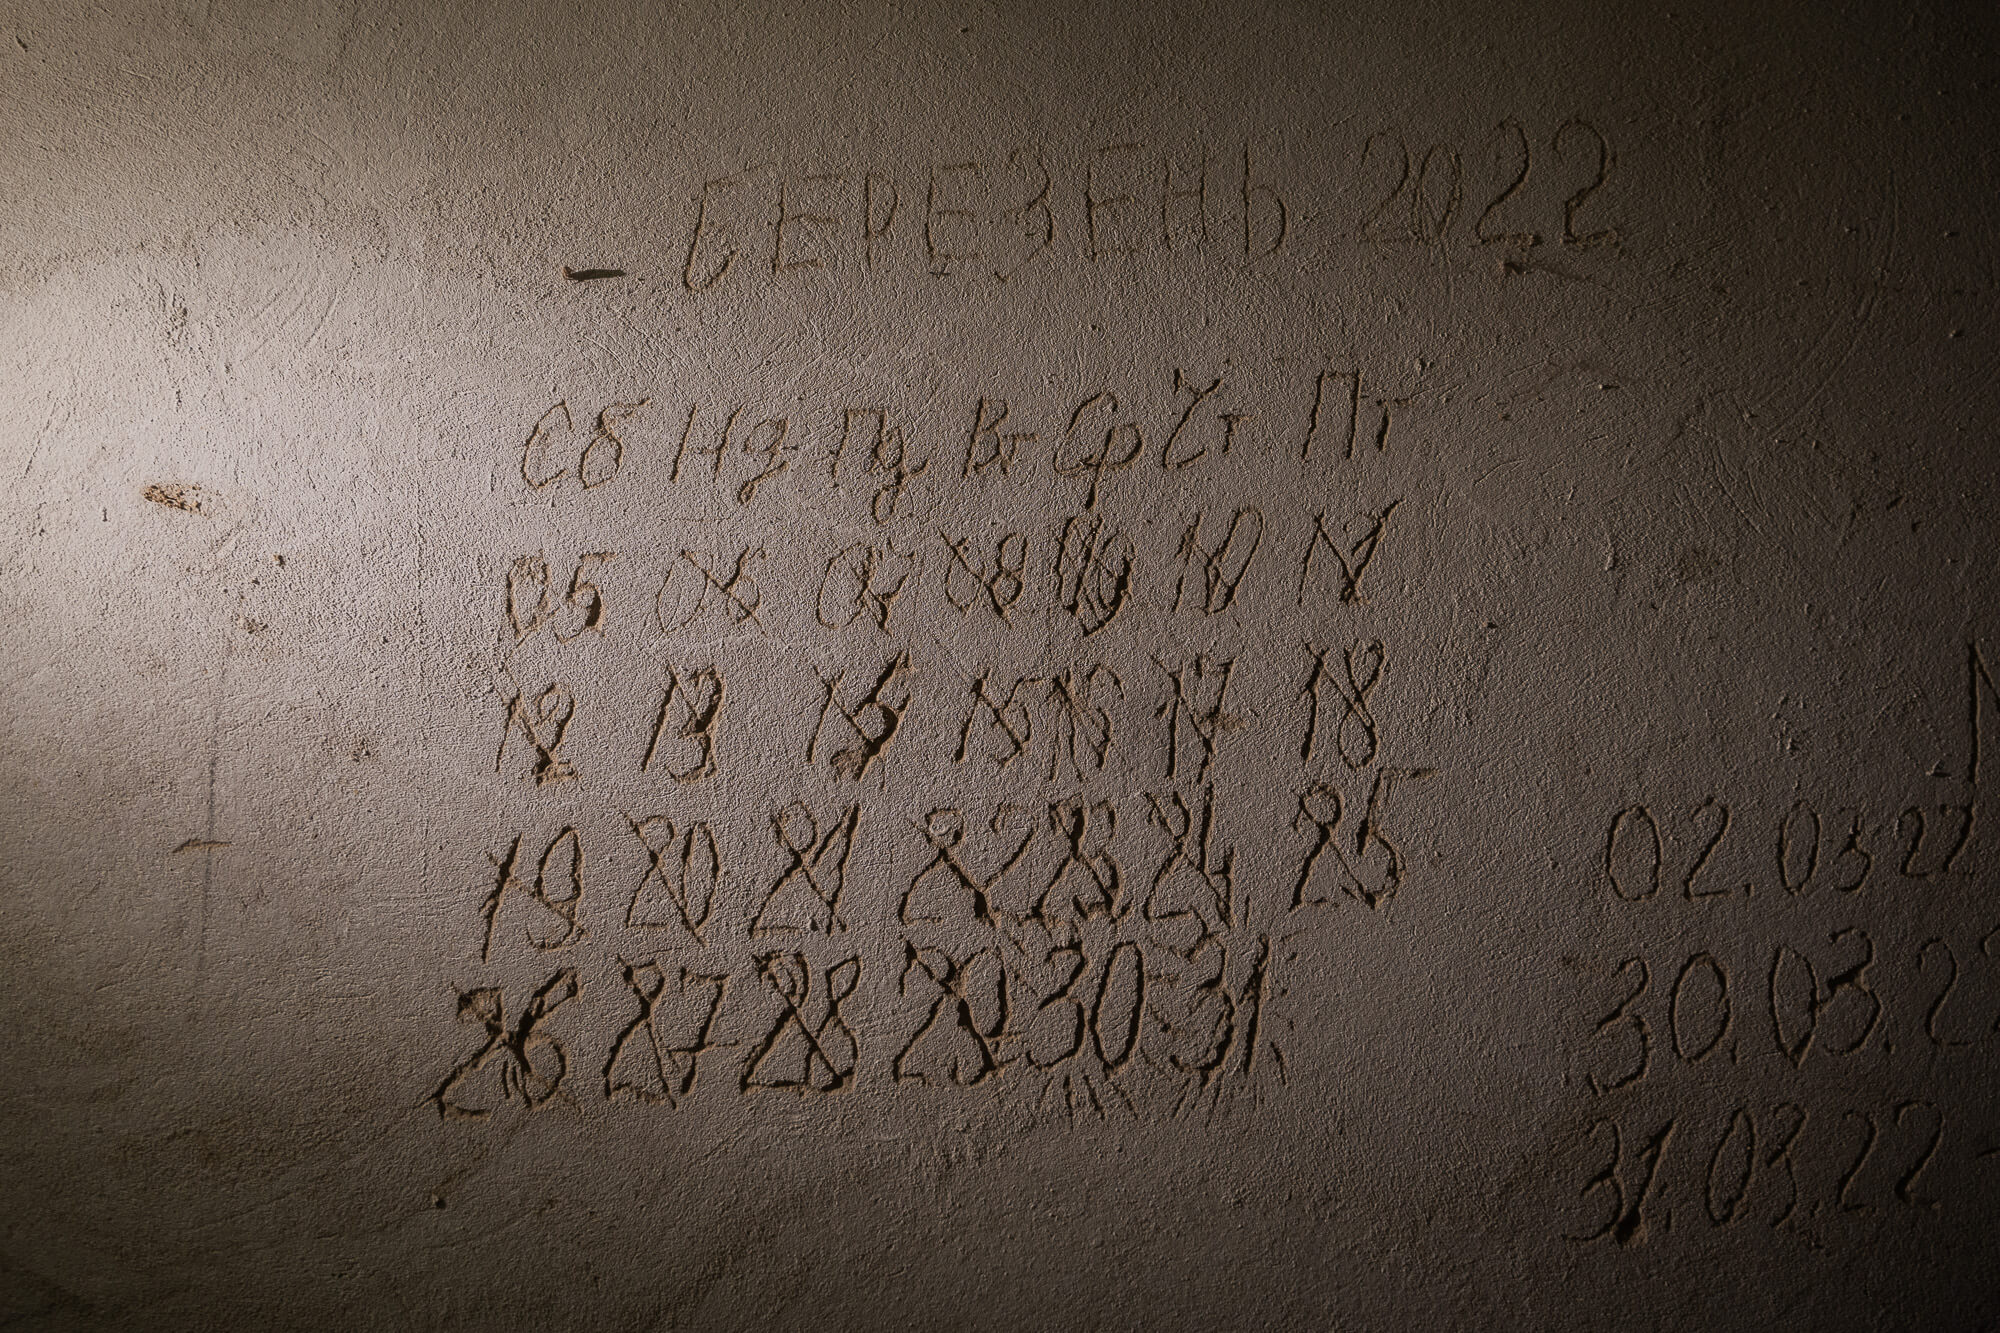 БЕРЕЗЕНЬ 2022
Сб Нд Пд Вт Ср Чт Пт
05 06 07 08 09 10 11
12 13 14 15 16 17 18
19 20 21 22 23 24 25
26 27 28 29 30 31
02.03.22
30.03.22
31.03.22